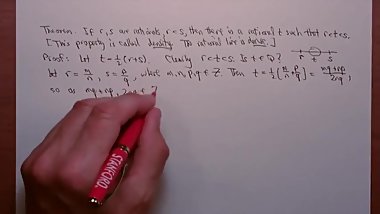 Theorem. If r, s are rationals, r < s, then there is a rational t such that r < t < s.
[This property is called density. The rational line is dense.]
r t s
Proof: Let t = ½(r+s). Clearly r < t < s. Is t ∈ ℚ?
Let r = m/n, s = p/q, where m, n, p, q ∈ ℤ. Then t = ½[m/n + p/q] = (mq+np)/2nq,
so as mq+np, 2nq ∈ ℤ
STANFORD